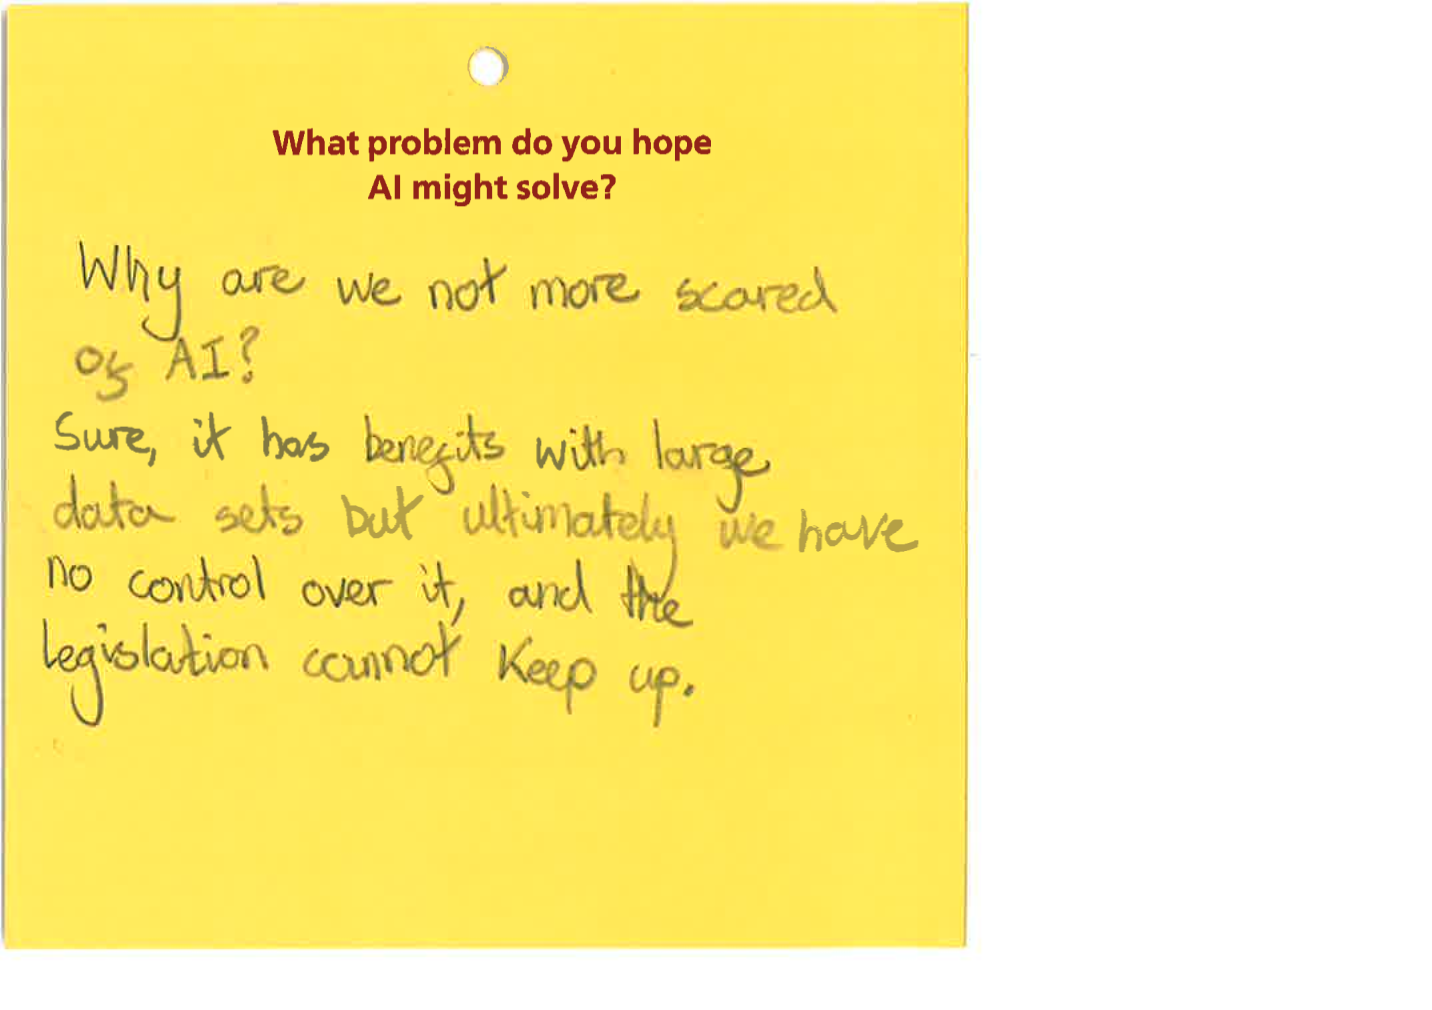 What problem do you hope
AI might solve?
Why are we not more scared
of AI?
Sure, it has benefits with large
data sets but ultimately we have
no control over it, and the
legislation cannot keep up.